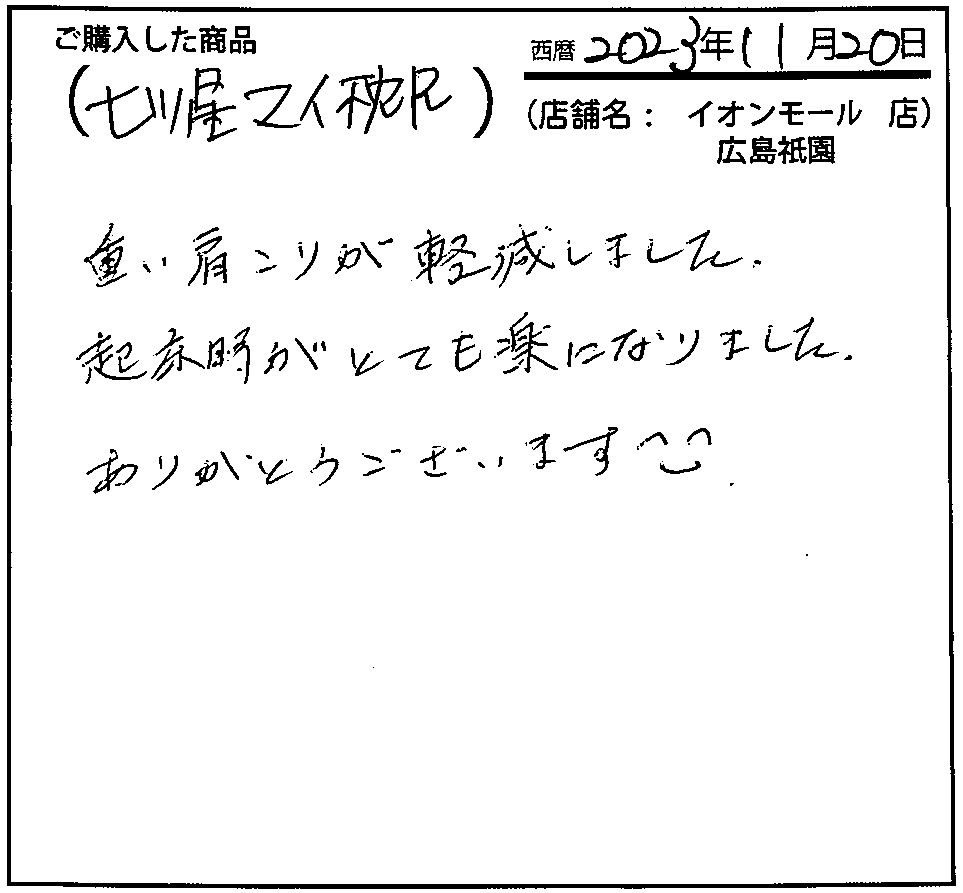 ご購入した商品
西暦 2023年11月20日
(七ツ屋マイ枕R)
(店舗名: イオンモール 店)
広島祇園
重い肩こりが軽減しました.
起床時がとても楽になりました.
ありがとうございます